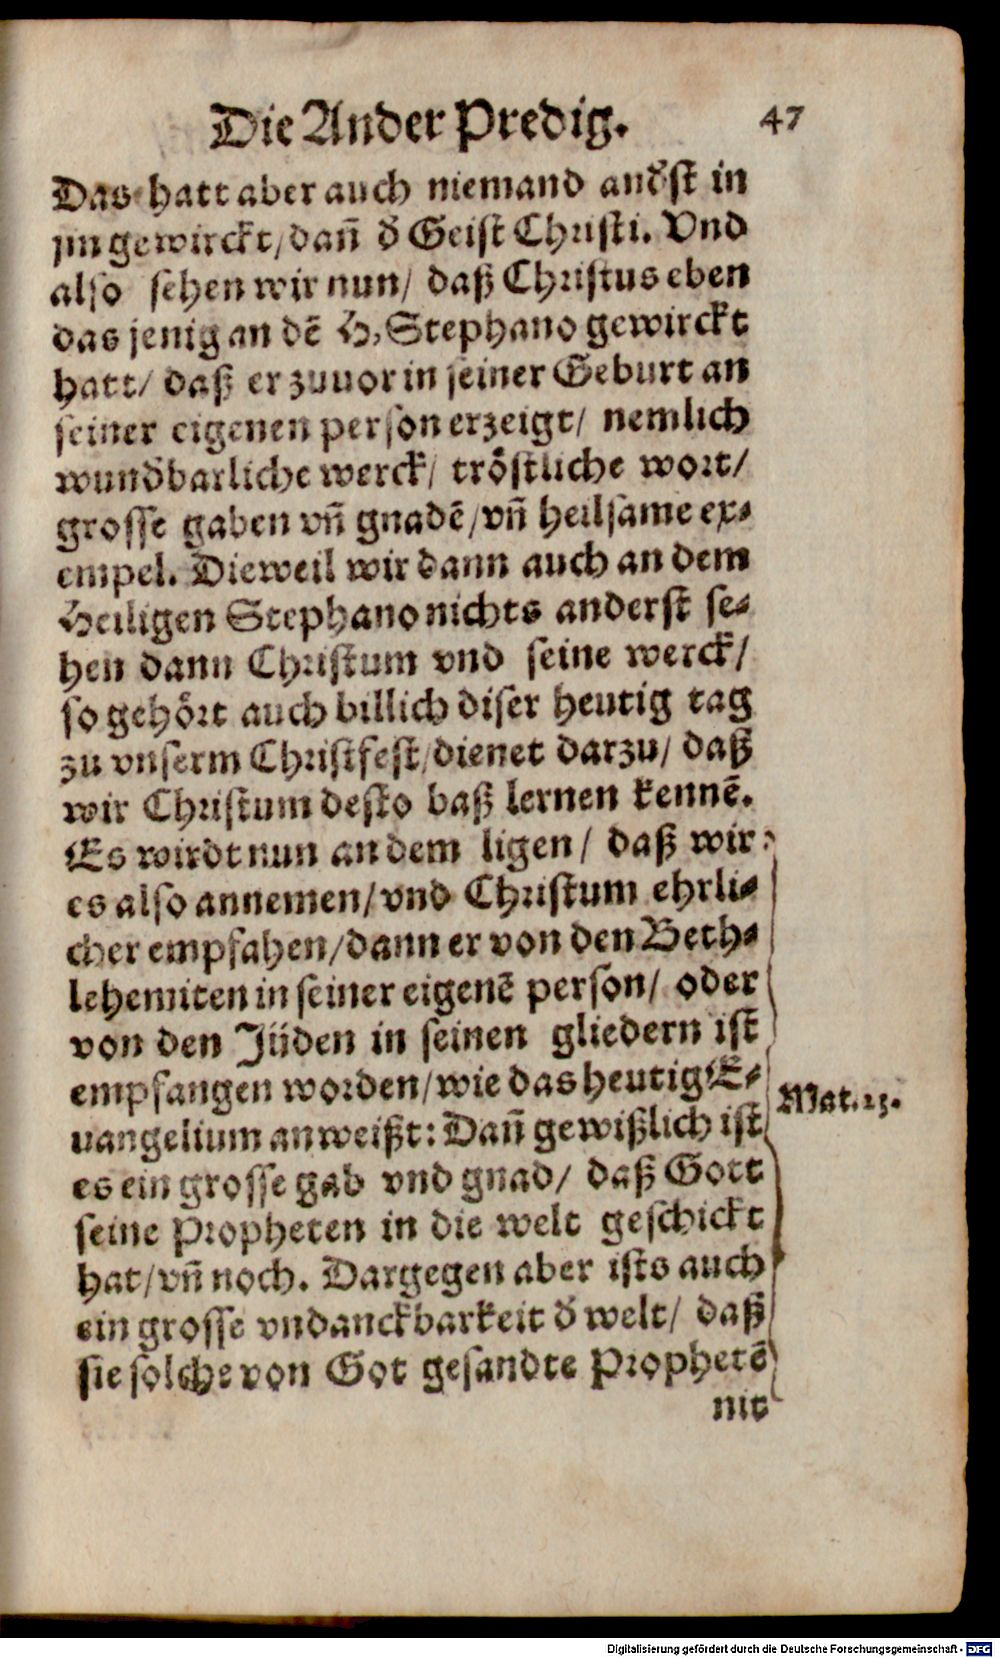 Die Ander Predig. 47
Das hatt aber auch niemand and̕st in
jm gewirckt/ dañ d̕ Geist Christi. Vnd
also sehen wir nun/ daß Christus eben
das jenig an dē H. Stephano gewirckt
hatt/ daß er zuuor in seiner Geburt an
seiner eigenen person erzeigt/ nemlich
wund̕barliche werck/ tröstliche wort/
grosse gaben vñ gnadē/ vñ heilsame ex⸗
empel. Dieweil wir dann auch an dem
Heiligen Stephano nichts anderst se⸗
hen dann Christum vnd seine werck/
so gehört auch billich diser heutig tag
zu vnserm Christfest/ dienet darzu/ daß
wir Christum desto baß lernen kennē.
Es wirdt nun an dem ligen/ daß wir
es also annemen/ vnd Christum ehrli⸗
cher empfahen/ dann er von den Beth⸗
lehemiten in seiner eigenē person/ oder
von den Jüden in seinen gliedern ist
empfangen worden/ wie das heutig E⸗
uangelium anweißt: Dañ gewißlich ist
Mat. 23.
es ein grosse gab vnd gnad/ daß Gott
seine Propheten in die welt geschickt
hat/ vñ noch. Dargegen aber ists auch
ein grosse vndanckbarkeit d̕ welt/ daß
sie solche von Got gesandte Prophetē
nit
Digitalisierung gefördert durch die Deutsche Forschungsgemeinschaft - DFG